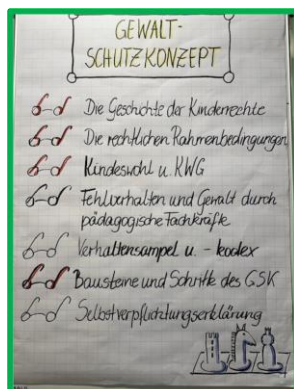 GEWALT-
SCHUTZKONZEPT
Die Geschichte der Kinderrechte
Die rechtlichen Rahmenbedingungen
Kindeswohl u. KWG
Fehlverhalten und Gewalt durch
pädagogische Fachkräfte
Verhaltensampel u. - kodex
Bausteine und Schritte des GSK
Selbstverpflichtungserklärung